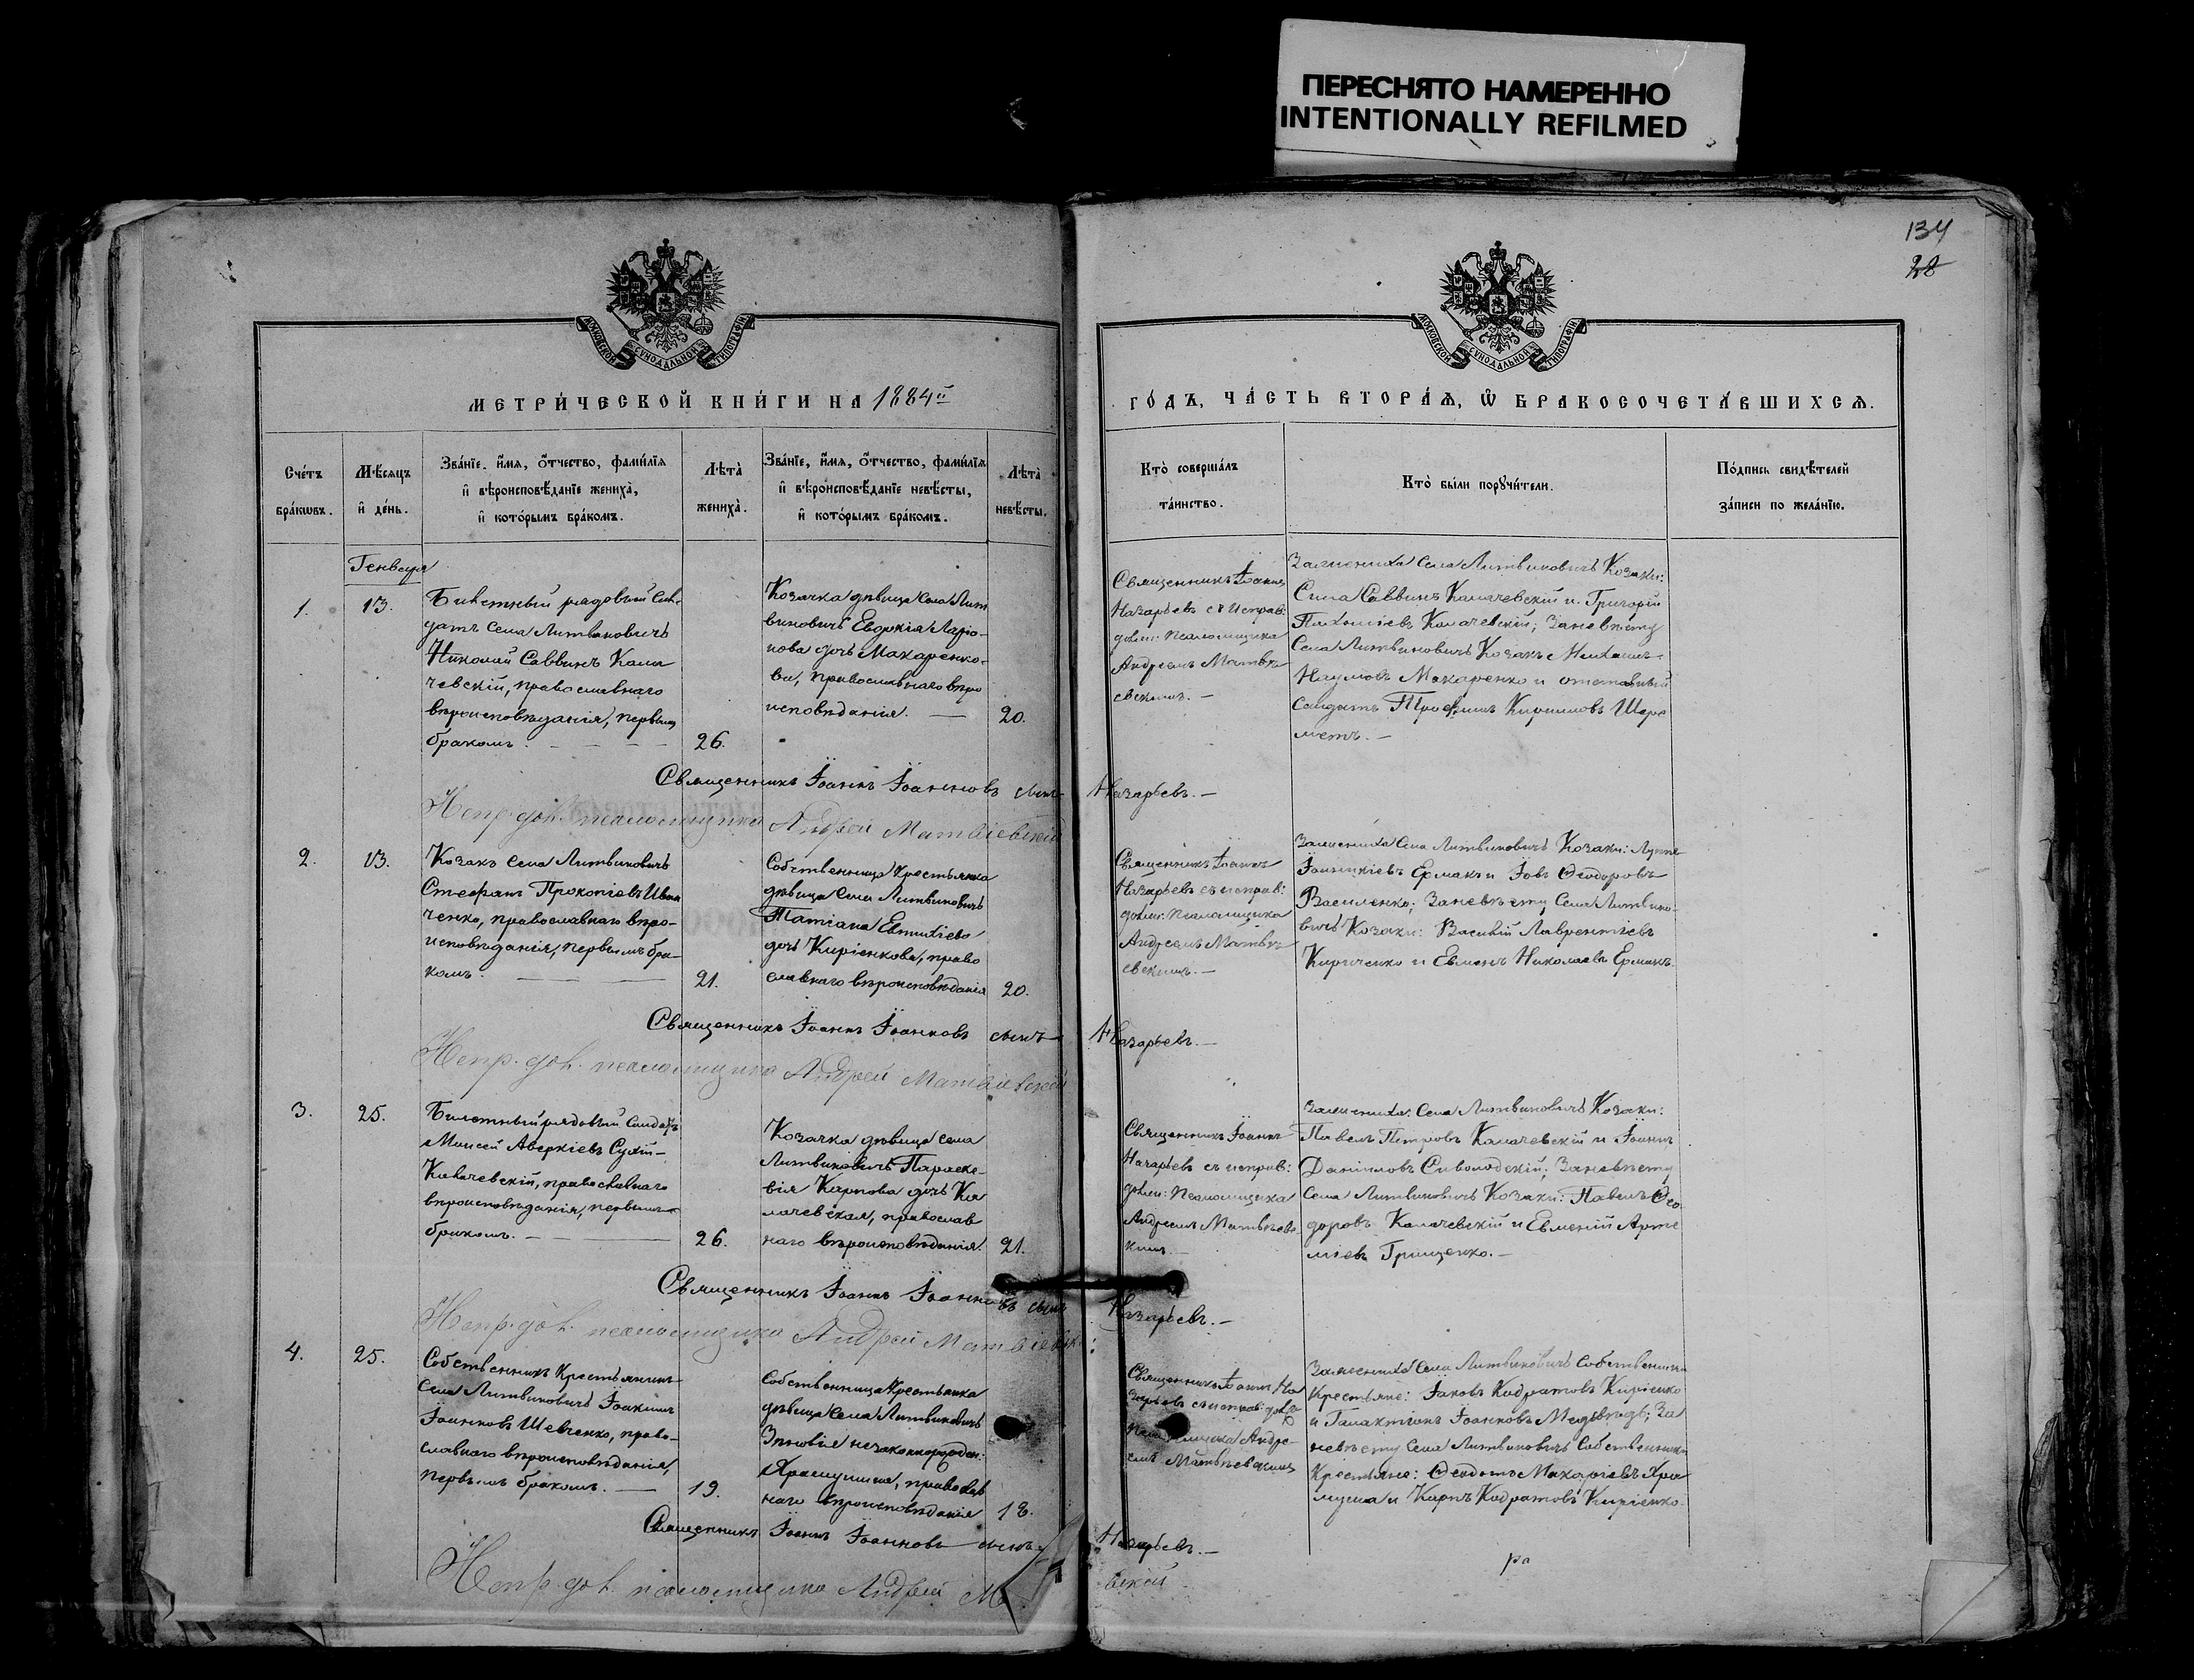 ПЕРЕСНЯТО НАМЕРЕННО
INTENTIONALLY REFILMED
134
28
МОСКОВСКОЙ СѴНОДАЛЬНОЙ ТИПОГРАФІИ
МОСКОВСКОЙ СѴНОДАЛЬНОЙ ТИПОГРАФІИ
МЕТРИ́ЧЕСКОЙ КНИ́ГИ НА 1884й
ГО́ДЪ, ЧА́СТЬ ВТОРА́Ѧ, Ѡ҆ БРАКОСОЧЕТА́ВШИХСѦ.
Сче́тъ
бра́кѡвъ.
Мѣ́сѧцъ
и҆ де́нь.
Зва́нїе, и҆́мѧ, ѻ҆́тчество, фами́лїѧ
и҆ вѣроисповѣ́данїе жениха̀,
и҆ кото́рымъ бра́комъ.
Лѣта̀
жениха̀.
Зва́нїе, и҆́мѧ, ѻ҆́тчество, фами́лїѧ
и҆ вѣроисповѣ́данїе невѣ́сты,
и҆ кото́рымъ бра́комъ.
Лѣта̀
невѣ́сты.
Кто̀ соверша́лъ
та́инство.
Кто̀ бы́ли порꙋчи́тели.
По́дпись свидѣ́телей
за́писи по жела́нїю.
Генваря
1.
13.
Билетный рядовый Сол-
датъ Села Литвиновичъ
Николай Саввинъ Кала
чевскій, православнаго
вѣроисповѣданія, первымъ
бракомъ.
26.
Козачка дѣвица Села Лит
виновичъ Евдокія Ларіо-
нова дочь Макаренко-
ва, православнаго вѣро
исповѣданія. —
20.
Священникъ Іоаннъ
Назарьевъ съ исправ:
долж: Псаломщика
Андреемъ Матвѣ
евскимъ. —
За жениха Села Литвиновичъ Козаки:
Сила Саввинъ Калачевскій и Григорій
Пахоміевъ Калачевскій; За невѣсту
Села Литвиновичъ Козакъ Михаилъ
Наумовъ Макаренко и отставный
Солдатъ Трофимъ Кирилловъ Шере
метъ. —
Священникъ Іоаннъ Іоанновъ сынъ Назарьевъ. —
Испр. дол. псаломщика Андрей Матвіевскій
2.
13.
Козакъ Села Литвиновичъ
Стефанъ Прокопіевъ Иван
ченко, православнаго вѣро-
исповѣданія, первымъ бра-
комъ.
21.
Собственница Крестьянка
дѣвица Села Литвиновичъ
Татіана Евтихіева
дочь Киріенкова, право
славнаго вѣроисповѣданія
20.
Священникъ Іоаннъ
Назарьевъ съ исправ:
долж: Псаломщика
Андреемъ Матвѣ
евскимъ. —
За жениха Села Литвиновичъ Козаки: Лукіа
Іоанникіевъ Ермакъ и Іовъ Ѳеодоровъ
Василенко; За невѣсту Села Литвино-
вичъ Козаки: Василій Лаврентіевъ
Кириченко и Евменъ Николаевъ Ермакъ.
Священникъ Іоаннъ Іоанновъ сынъ Назарьевъ. —
Испр. дол. псаломщика Андрей Матвіевскій
3.
25.
Билетный рядовый Солдатъ
Моисей Аверкіевъ Сухій-
Калачевскій, православнаго
вѣроисповѣданія, первымъ
бракомъ. —
26.
Козачка дѣвица села
Литвиновичъ Параске-
вія Карпова дочь Ка
лачевская, православ
наго вѣроисповѣданія.
21.
Священникъ Іоаннъ
Назарьевъ съ исправ:
долж: Псаломщика
Андреемъ Матвѣевс-
кимъ —
За жениха: Села Литвиновичъ Козаки:
Павелъ Петровъ Калачевскій и Іоаннъ
Даніиловъ Сиволодскій; За невѣсту
Села Литвиновичъ Козаки: Павелъ Ѳео
доровъ Калачевскій и Евменій Арте
міевъ Грищенко. —
Священникъ Іоаннъ Іоанновъ сынъ Назарьевъ. —
Испр. дол. псаломщика Андрей Матвіевскій:
4.
25.
Собственникъ Крестьянинъ
Села Литвиновичъ Іоакимъ
Іоанновъ Шевченко, право-
славнаго вѣроисповѣданія,
первымъ бракомъ. —
19.
Собственница Крестьянка
дѣвица Села Литвиновичъ
Зиновія незаконнорожден:
Храмушина, православ
наго вѣроисповѣданія
18.
Священникъ Іоаннъ На
зарьевъ съ исправ: долж
Псаломщика Андре-
емъ Матвѣевскимъ
За жениха Села Литвиновичъ Собственники
Крестьяне: Іаковъ Кодратовъ Киріенко
и Галактіонъ Іоанновъ Медвѣдь; За
невѣсту Села Литвиновичъ Собственники
Крестьяне: Ѳеодотъ Макаріевъ Хра
муша и Карпъ Кодратовъ Киріенко.
Священникъ Іоаннъ Іоанновъ сынъ Назарьевъ. —
Испр. дол. псаломщика Андрей М вскій
ра